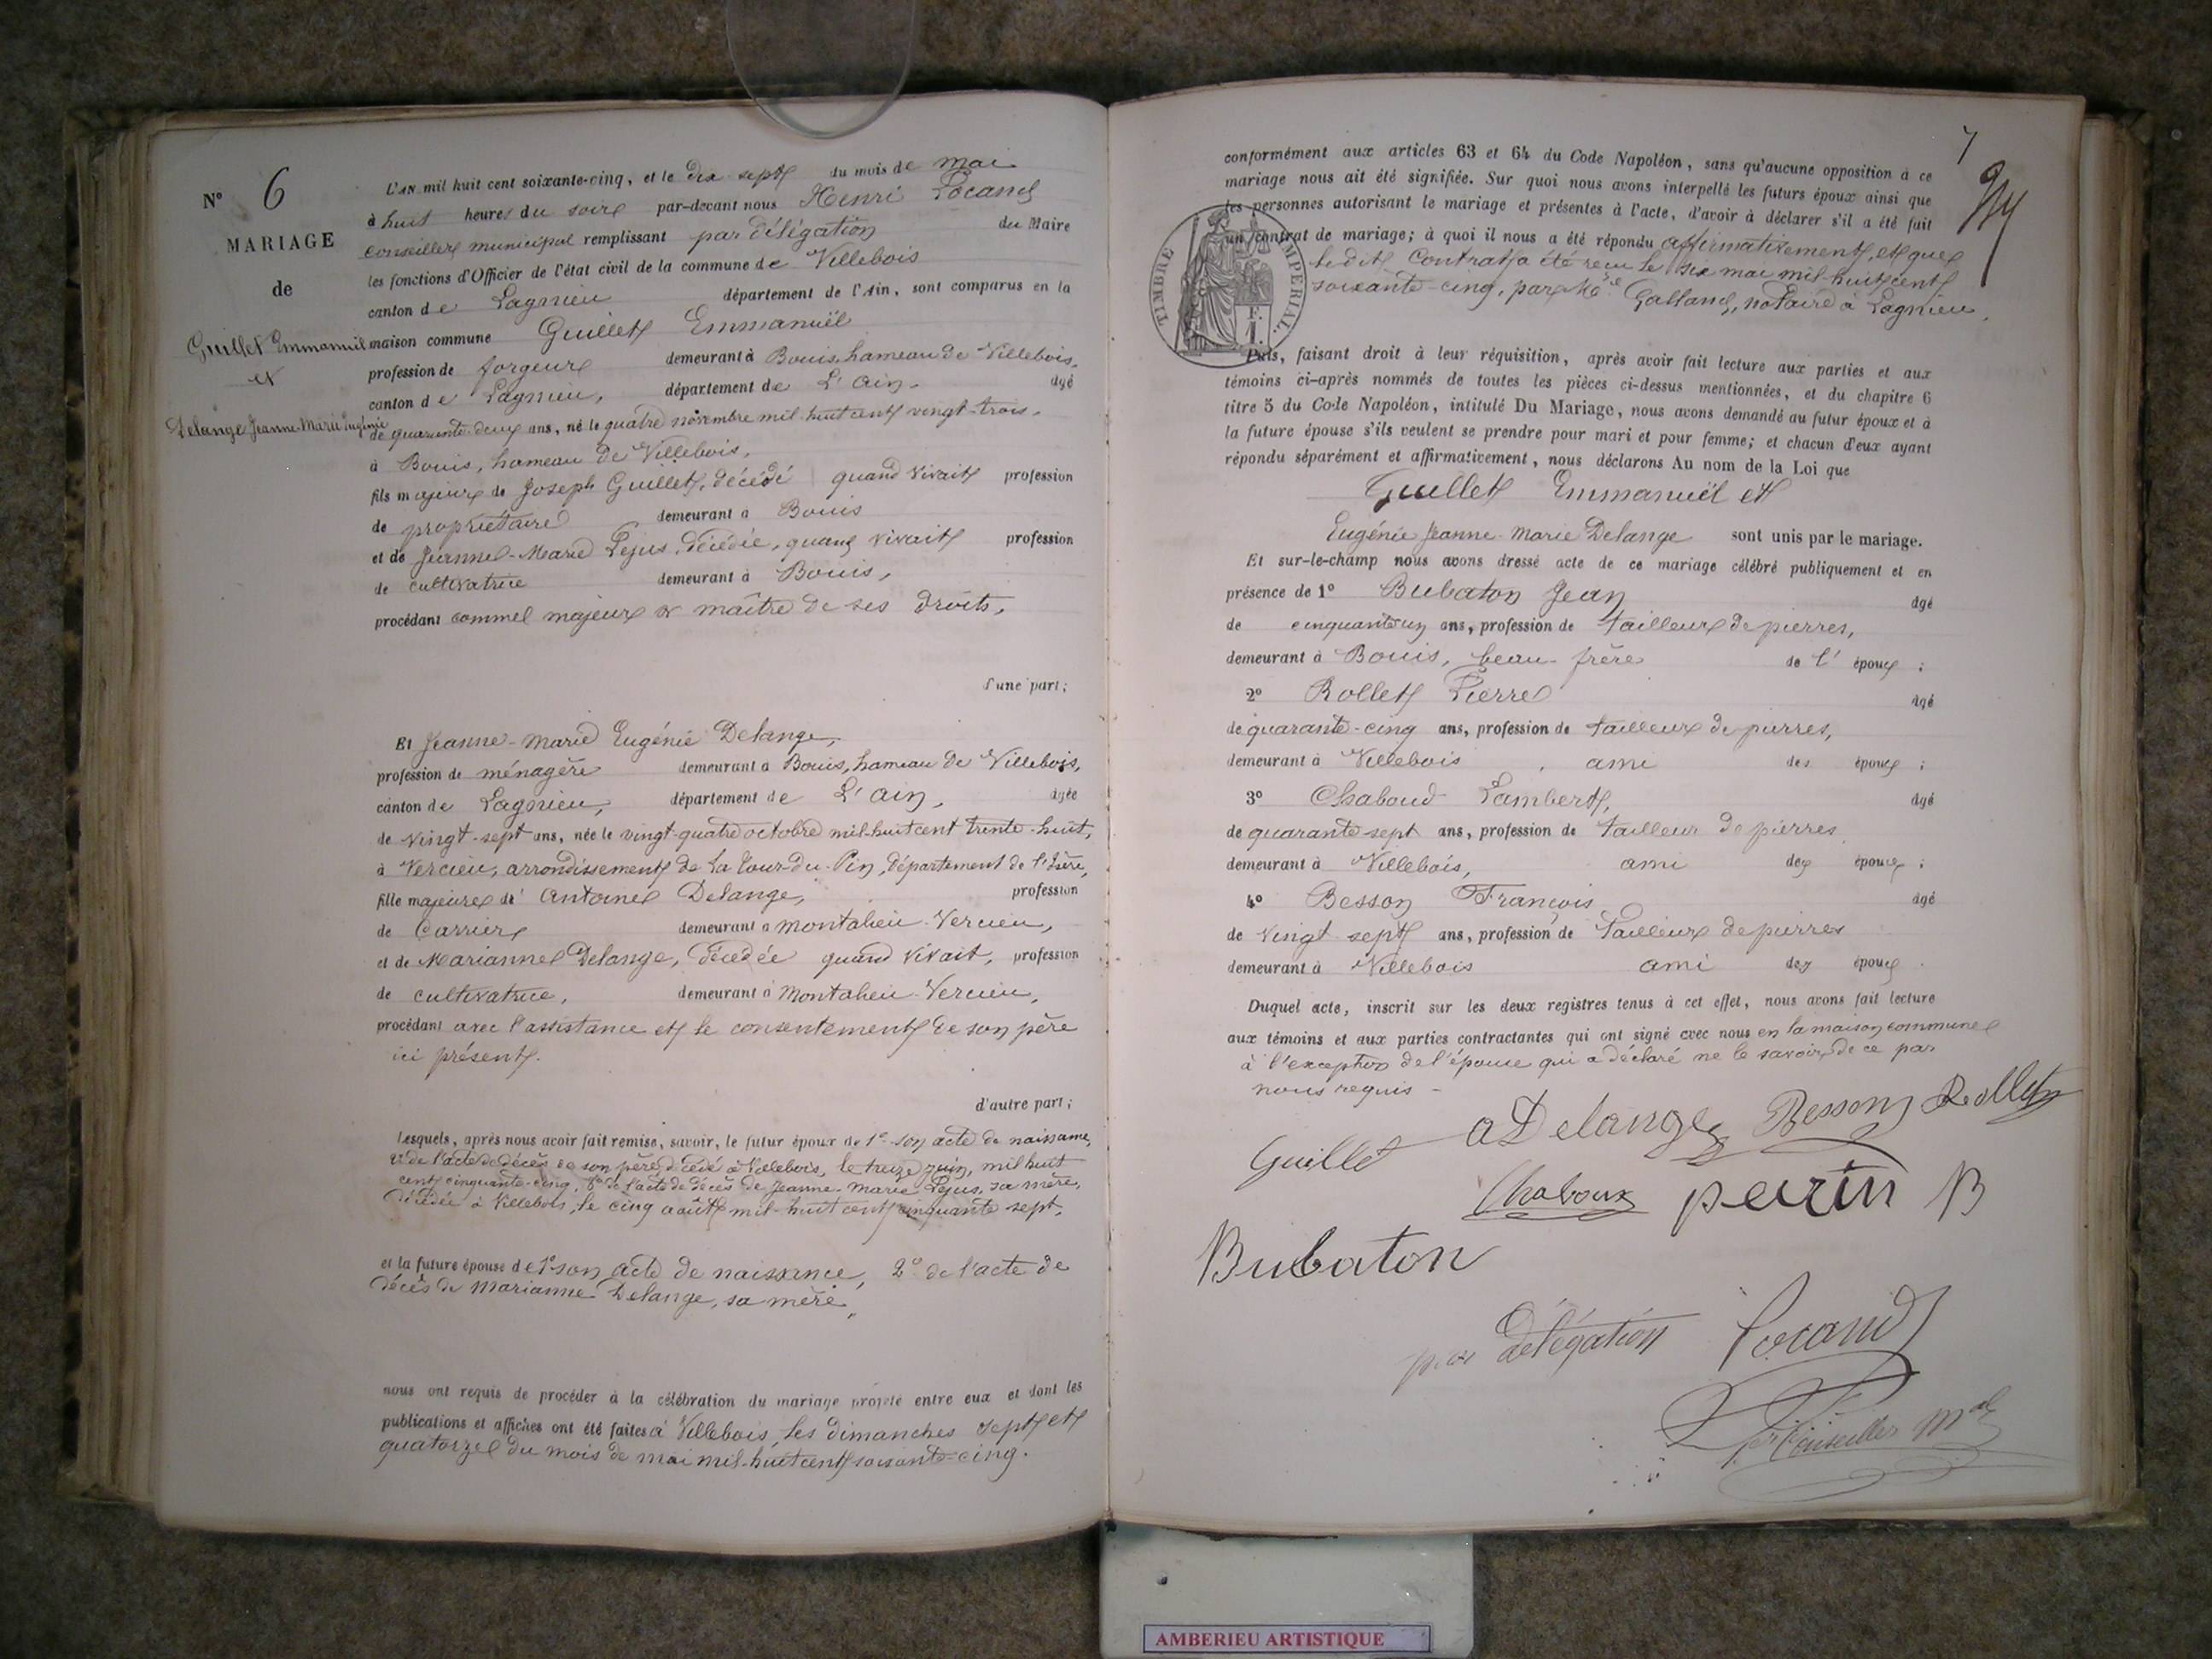 N° 6
MARIAGE
de
Guillet Emmanuel
et
Delange Jeanne-Marie Eugénie
L'AN mil huit cent soixante-cinq, et le dix sept du mois de mai
à huit heures du soir par-devant nous Henri Locand
conseiller municipal remplissant par délégation du Maire
les fonctions d'Officier de l'état civil de la commune de Villebois
canton de Lagnieu département de l'Ain, sont comparus en la
maison commune Guillet Emmanuël
profession de forgeur demeurant à Bouis, hameau de Villebois,
canton de Lagnieu, département de L'Ain. âgé
de quarante-deux ans, né le quatre novembre mil-huit cent vingt-trois.
à Bouis, hameau de Villebois,
fils majeur de Joseph Guillet, décédé quand vivait profession
de propriétaire demeurant à Bouis
et de Jeanne-Marie Pejus, décédée, quand vivait profession
de cultivatrice demeurant à Bouis,
procédant comme majeur & maître de ses droits,
d'une part;
Et Jeanne-Marie Eugénie Delange,
profession de ménagère demeurant à Bouis, hameau de Villebois,
canton de Lagnieu, département de L'Ain, âgée
de vingt-sept ans, née le vingt-quatre octobre mil-huit cent trente-huit,
à Vercieu, arrondissement de La Tour-du-Pin, département de l'Isère,
fille majeure de Antoine Delange, profession
de Carrier demeurant à Montalieu-Vercieu,
et de Marianne Delange, décédée quand vivait, profession
de cultivatrice, demeurant à Montalieu-Vercieu,
procédant avec l'assistance et le consentement de son père
ici présent.
d'autre part;
Lesquels, après nous avoir fait remise, savoir, le futur époux de 1° son acte de naissance,
2° de l'acte de décès de son père, décédé à Villebois, le treize juin, mil huit
cent cinquante-cinq, 3° de l'acte de décès de Jeanne-Marie Pejus, sa mère,
décédée à Villebois, le cinq août mil-huit cent cinquante sept,
et la future épouse de 1° son acte de naissance, 2° de l'acte de
décès de Marianne Delange, sa mère,
nous ont requis de procéder à la célébration du mariage projeté entre eux et dont les
publications et affiches ont été faites à Villebois, les dimanches sept et
quatorze du mois de mai mil-huit cent soixante-cinq.
7
conformément aux articles 63 et 64 du Code Napoléon, sans qu'aucune opposition à ce
mariage nous ait été signifiée. Sur quoi nous avons interpellé les futurs époux ainsi que
les personnes autorisant le mariage et présentes à l'acte, d'avoir à déclarer s'il a été fait
un contrat de mariage; à quoi il nous a été répondu affirmativement, et que
ledit Contrat a été reçu le six mai mil-huit cent
soixante-cinq, par Me Galland, notaire à Lagnieu.
TIMBRE IMPÉRIAL.
F.
1.
Puis, faisant droit à leur réquisition, après avoir fait lecture aux parties et aux
témoins ci-après nommés de toutes les pièces ci-dessus mentionnées, et du chapitre 6
titre 5 du Code Napoléon, intitulé Du Mariage, nous avons demandé au futur époux et à
la future épouse s'ils veulent se prendre pour mari et pour femme; et chacun d'eux ayant
répondu séparément et affirmativement, nous déclarons Au nom de la Loi que
Guillet Emmanuël et
Eugénie Jeanne-Marie Delange sont unis par le mariage.
Et sur-le-champ nous avons dressé acte de ce mariage célébré publiquement et en
présence de 1° Bubaton Jean âgé
de cinquante un ans, profession de tailleur de pierres,
demeurant à Bouis, beau-frère de l' époux ;
2° Rollet Pierre âgé
de quarante-cinq ans, profession de tailleur de pierres,
demeurant à Villebois, ami des époux ;
3° Chaboud Lambert, âgé
de quarante sept ans, profession de tailleur de pierres
demeurant à Villebois, ami des époux ;
4° Besson François âgé
de vingt sept ans, profession de Tailleur de pierres
demeurant à Villebois ami des époux.
Duquel acte, inscrit sur les deux registres tenus à cet effet, nous avons fait lecture
aux témoins et aux parties contractantes qui ont signé avec nous en la maison commune
à l'exception de l'épouse qui a déclaré ne le savoir de ce par
nous requis -
Guillet a Delange Besson Rollet
Chaboux perrin B
Bubaton
par délégation Locand
1er Conseiller Mal
AMBERIEU ARTISTIQUE